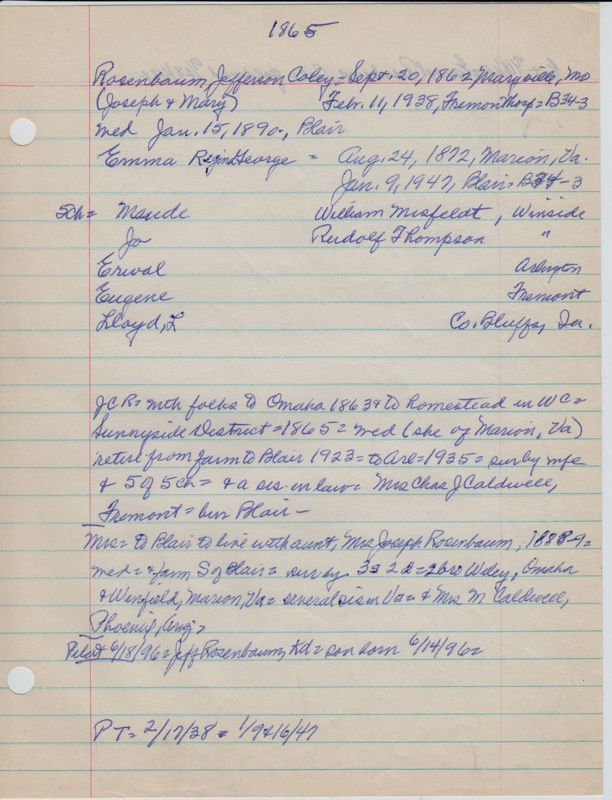 1865
Rosenbaum, Jefferson Coley = Sept. 20, 1862 Maryville, Mo
(Joseph & Mary) Febr. 11, 1938, Fremont hosp = B34-3
med Jan. 15, 1890, Blair
Emma George = Aug. 24, 1872, Marion, Va.
Jan. 9, 1947, Blair = B34-3
5ch = Maude William Misfeldt, Winside
Jo Rudolf Thompson "
Erwal Arlington
Eugene Fremont
Lloyd, L Co. Bluffs, Ia.
JCR = with folks to Omaha 1863 & to homestead in WC =
Sunnyside District = 1865 = med (she of Marion, Va)
retire from farm to Blair 1923 = to Arl = 1935 = sur by wife
& 5 of 5ch = & a sis-in-law = Mrs Chas J Caldwell,
Fremont = bur Blair -
Mrs = to Blair to live with aunt, Mrs Joseph Rosenbaum, 1888-9 =
med = farm S of Blair = sur by 3s 2d = 2b Wiley, Omaha
& Winfield, Marion, Va = several sis in Va = & Mrs M Caldwell,
Phoenix, Ariz =
Pilot 6/18/96 = Jeff Rosenbaum, Kd = son born 6/14/96 =
PT = 2/17/38 = 1/9 & 16/47